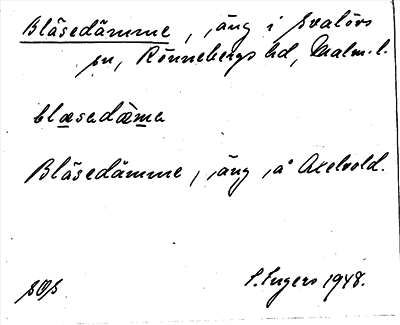 Bläsedämme, äng i Svalövs
sn, Rönnebergs hd, Malm. l.
blæsedæ̀me
Bläsedämme, äng å Axelvold.
SOS
S. Ingers 1948.